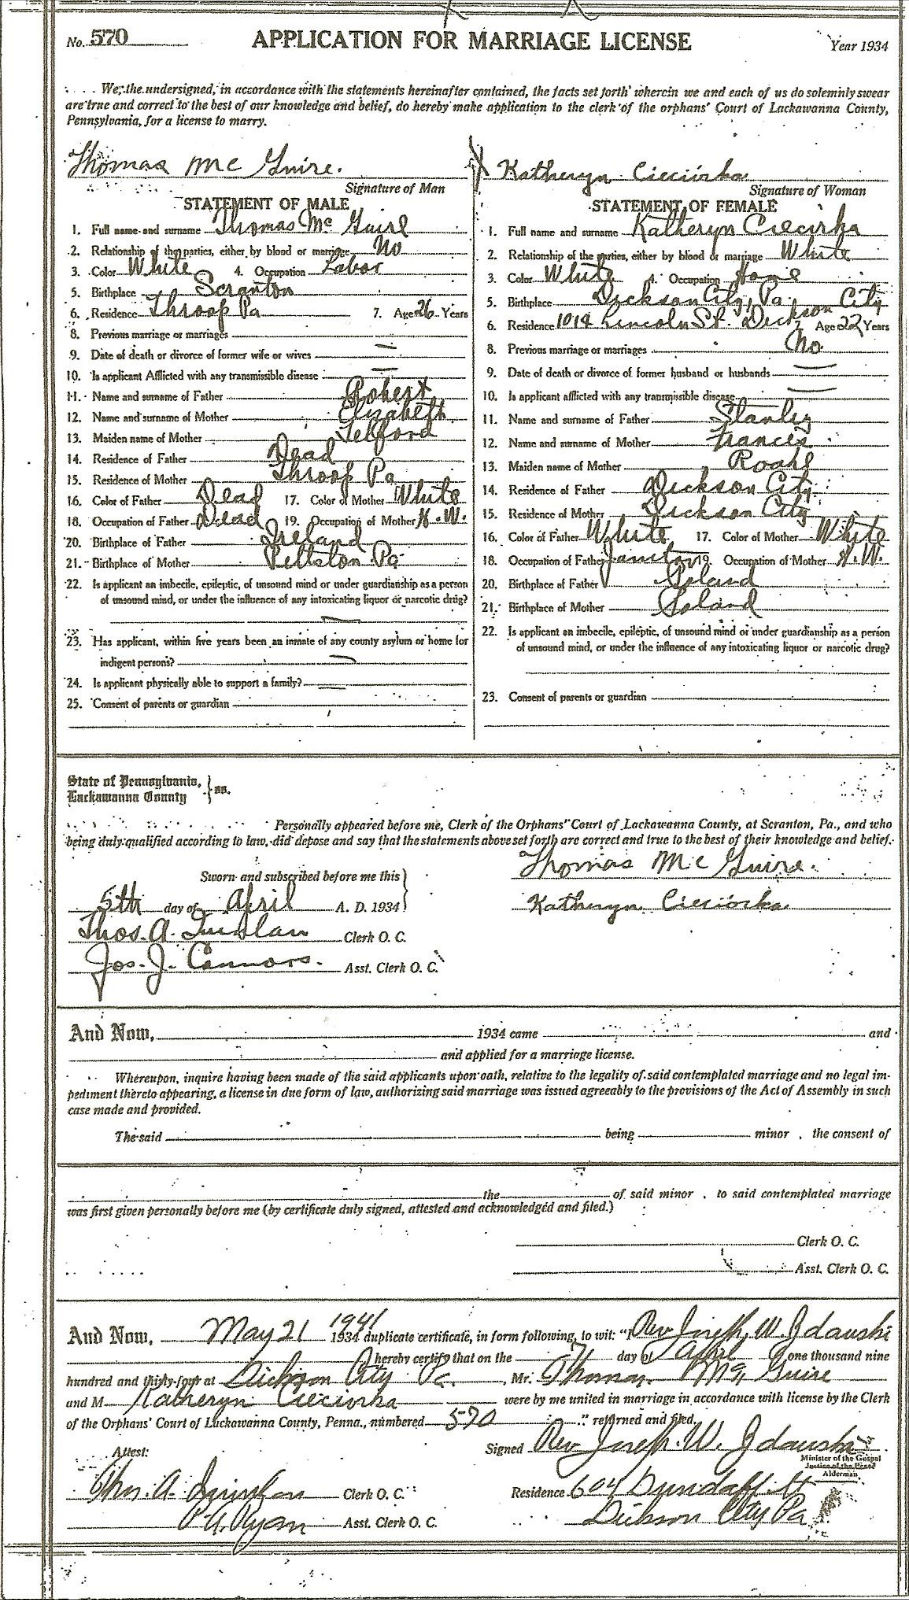 No. 570 APPLICATION FOR MARRIAGE LICENSE Year 1934
We, the undersigned, in accordance with the statements hereinafter contained, the facts set forth wherein we and each of us do solemnly swear
are true and correct to the best of our knowledge and belief, do hereby make application to the clerk of the orphans' Court of Lackawanna County,
Pennsylvania, for a license to marry.
Thomas McGuire.
Signature of Man
STATEMENT OF MALE
1. Full name and surname Thomas McGuire
2. Relationship of the parties, either by blood or marriage No
3. Color White 4. Occupation Labor
5. Birthplace Scranton
6. Residence Throop Pa 7. Age 26 Years
8. Previous marriage or marriages
9. Date of death or divorce of former wife or wives —
10. Is applicant Afflicted with any transmissible disease —
11. Name and surname of Father Robert
12. Name and surname of Mother Elizabeth
13. Maiden name of Mother Telford
14. Residence of Father Dead
15. Residence of Mother Throop Pa
16. Color of Father Dead 17. Color of Mother White
18. Occupation of Father Dead 19. Occupation of Mother H.W.
20. Birthplace of Father Ireland
21. Birthplace of Mother Pittston Pa
22. Is applicant an imbecile, epileptic, of unsound mind or under guardianship as a person
of unsound mind, or under the influence of any intoxicating liquor or narcotic drug?
—
23. Has applicant, within five years been an inmate of any county asylum or home for
indigent persons? —
24. Is applicant physically able to support a family? —
25. Consent of parents or guardian
X Katheryn Cieciorka
Signature of Woman
STATEMENT OF FEMALE
1. Full name and surname Katheryn Ciecirka
2. Relationship of the parties, either by blood or marriage White
3. Color White Occupation Home
5. Birthplace Dickson City, Pa.
6. Residence 1014 Lincoln St. Dickson City Age 22 Years
8. Previous marriage or marriages No
9. Date of death or divorce of former husband or husbands —
10. Is applicant afflicted with any transmissible disease —
11. Name and surname of Father Stanley
12. Name and surname of Mother Frances
13. Maiden name of Mother
14. Residence of Father Dickson City
15. Residence of Mother Dickson City
16. Color of Father White 17. Color of Mother White
18. Occupation of Father Janitor 19. Occupation of Mother H.W.
20. Birthplace of Father Poland
21. Birthplace of Mother Poland
22. Is applicant an imbecile, epileptic, of unsound mind or under guardianship as a person
of unsound mind, or under the influence of any intoxicating liquor or narcotic drug?
23. Consent of parents or guardian
State of Pennsylvania,
Lackawanna County } ss.
Personally appeared before me, Clerk of the Orphans' Court of Lackawanna County, at Scranton, Pa., and who
being duly qualified according to law, did depose and say that the statements above set forth are correct and true to the best of their knowledge and belief.
Thomas McGuire.
Sworn and subscribed before me this
5th day of April A. D. 1934
Katheryn Cieciorka
Thos. A. Quinlan Clerk O. C.
Jos. J. Connors. Asst. Clerk O. C.
And Now, 1934 came and
and applied for a marriage license.
Whereupon, inquire having been made of the said applicants upon oath, relative to the legality of said contemplated marriage and no legal im-
pediment thereto appearing, a license in due form of law, authorizing said marriage was issued agreeably to the provisions of the Act of Assembly in such
case made and provided.
The said being minor, the consent of
the of said minor, to said contemplated marriage
was first given personally before me (by certificate duly signed, attested and acknowledged and filed.)
Clerk O. C.
Asst. Clerk O. C.
1941
And Now, May 21 1934 duplicate certificate, in form following, to wit: "I Rev Joseph W. Zdanski
hereby certify that on the 7 day of April one thousand nine
hundred and thirty-four at Dickson City Pa. , Mr. Thomas McGuire
and M Katheryn Cieciorka were by me united in marriage in accordance with license by the Clerk
of the Orphans' Court of Lackawanna County, Penna., numbered 570 " returned and filed.
Attest: Signed Rev Joseph W. Zdanski
Minister of the Gospel
Justice of the Peace
Alderman
Thos. A. Quinlan Clerk O. C. Residence 604 Dundaff St
Ryan Asst. Clerk O. C. Dickson City Pa